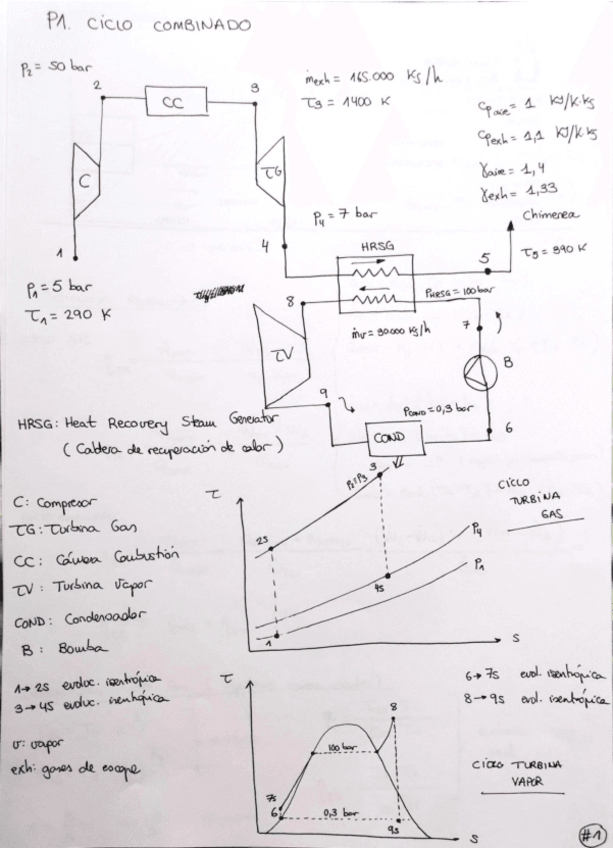 P1. CICLO COMBINADO
P2 = 50 bar
2
CC
3
ṁexh = 165.000 Kg/h
T3 = 1400 K
Cp aire = 1 KJ/K·Kg
Cp exh = 1,1 KJ/K·Kg
γaire = 1,4
γexh = 1,33
C
TG
P4 = 7 bar
Chimenea
1
4
HRSG
5
T5 = 390 K
P1 = 5 bar
T1 = 290 K
8
PHRSG = 100 bar
ṁv = 30.000 Kg/h
7
TV
B
9
PCOND = 0,3 bar
6
COND
HRSG: Heat Recovery Steam Generator
(Caldera de recuperación de calor)
C: Compresor
TG: Turbina Gas
CC: Cámara Combustión
TV: Turbina Vapor
COND: Condensador
B: Bomba
T
P2=P3
3
CICLO
TURBINA
GAS
2s
P4
4s
P1
1
S
1→2s evoluc. isentrópica
3→4s evoluc. isentrópica
6→7s evol. isentrópica
8→9s evol. isentrópica
v: vapor
exh: gases de escape
T
8
100 bar
CICLO TURBINA
VAPOR
7s
6
0,3 bar
9s
S
#1